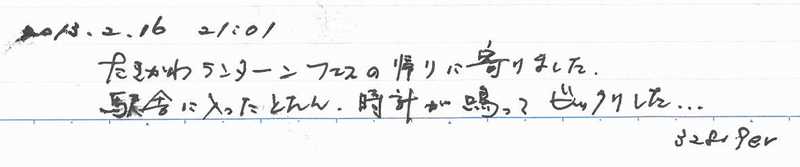 2013.2.16 21:01
たまがわランターンフェスの帰りに寄りました.
駅舎に入ったとたん.時計が鳴ってビックリした...